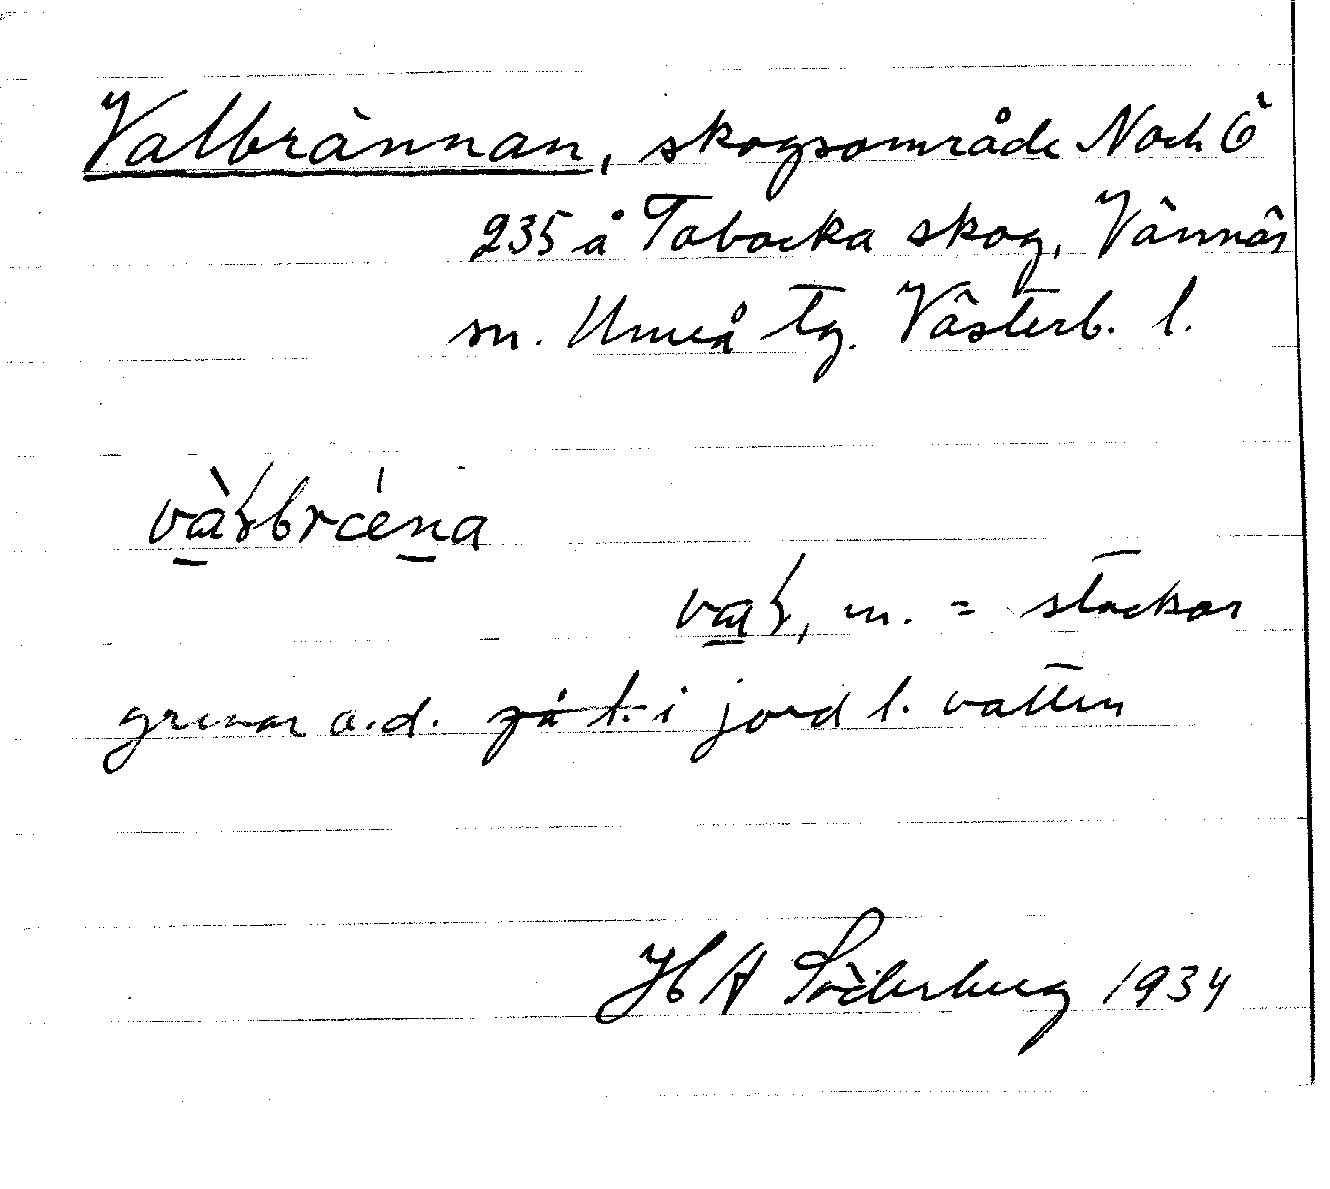 Valbrännan, skogsområde N och Ö
235 å Tobacka skog, Vännäs
sn. Umeå tg. Västerb. l.
vàɽbræ̀na
vaɽ, m. = stockar
grenar o.d. på l. i jord l. vatten
H A Söderberg 1934